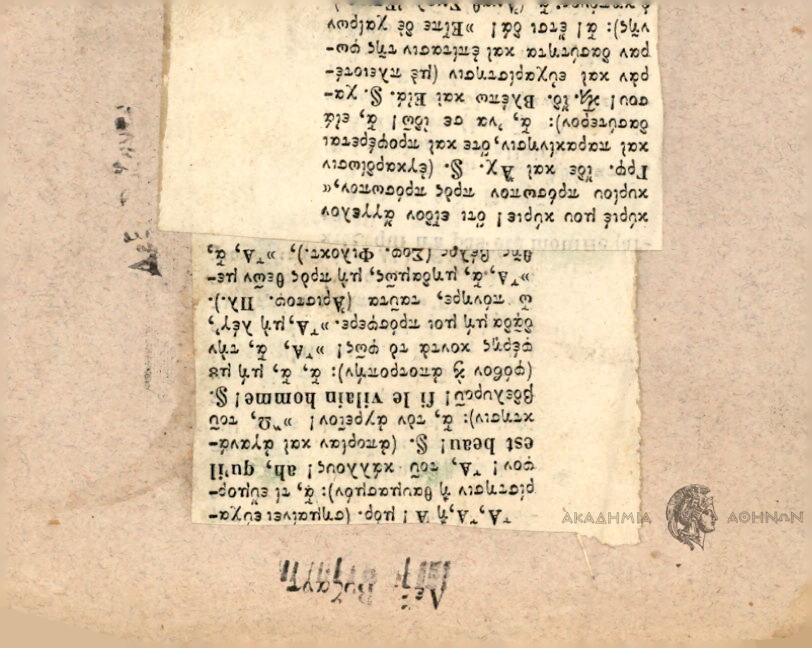 Λεξ Βυζαντ
Ἄ, Ἄ, ἢ Ἀ! μόρ. (σημαίνει εὐχα-
ρίστησιν ἢ θαυμασμόν): ἄ, τί εὔμορ-
φον! Ἄ, τοῦ κάλλους! ah, qu'il
est beau! §. (ἀπορίαν καὶ ἀγανά-
κτησιν): ἄ, τὸν ἀχρεῖον! »Ὢ, τοῦ
βδελυροῦ! fi le vilain homme! §.
(φόβον ἢ ἀποτροπήν): ἄ, ἄ, μή μȣ
φέρῃς κοντὰ τὸ φῶς! »Ἄ, ἄ, τὴν
δᾷδα μή μοι πρόσφερε. »Ἄ, μὴ λέγ',
ὦ πόνηρε, ταῦτα (Ἀριστοφ. Πλ.).
»Ἄ, ἄ, μηδαμῶς, μὴ πρὸς θεῶν με-
θῇς βέλος (Σοφ. Φιλοκτ.), »Ἄ, ἄ,
κύριέ μου κύριε! ὅτι εἶδον ἄγγελον
κυρίου πρόσωπον πρὸς πρόσωπον,«
Γρφ. ἴδε καὶ Ἄχ. §. (ἐγκαρδίωσιν
καὶ παρακίνησιν, ὅτε καὶ προφέρεται
δασύτερον): ἄ, 'να σε ἰδῶ! ἄ, εἰά
σου! ϗ. ἰδ. Βλέπω καὶ Εἰά. §. χα-
ρὰν καὶ εὐχαρίστησιν (μὲ πλειοτέ-
ραν δασύτητα καὶ ἐπίτασιν τῆς φω-
νῆς): ἄ! ἔτσι δά! »Εἶπε δὲ χαίρων
ΑΚΑΔΗΜΙΑ ΑΘΗΝΩΝ